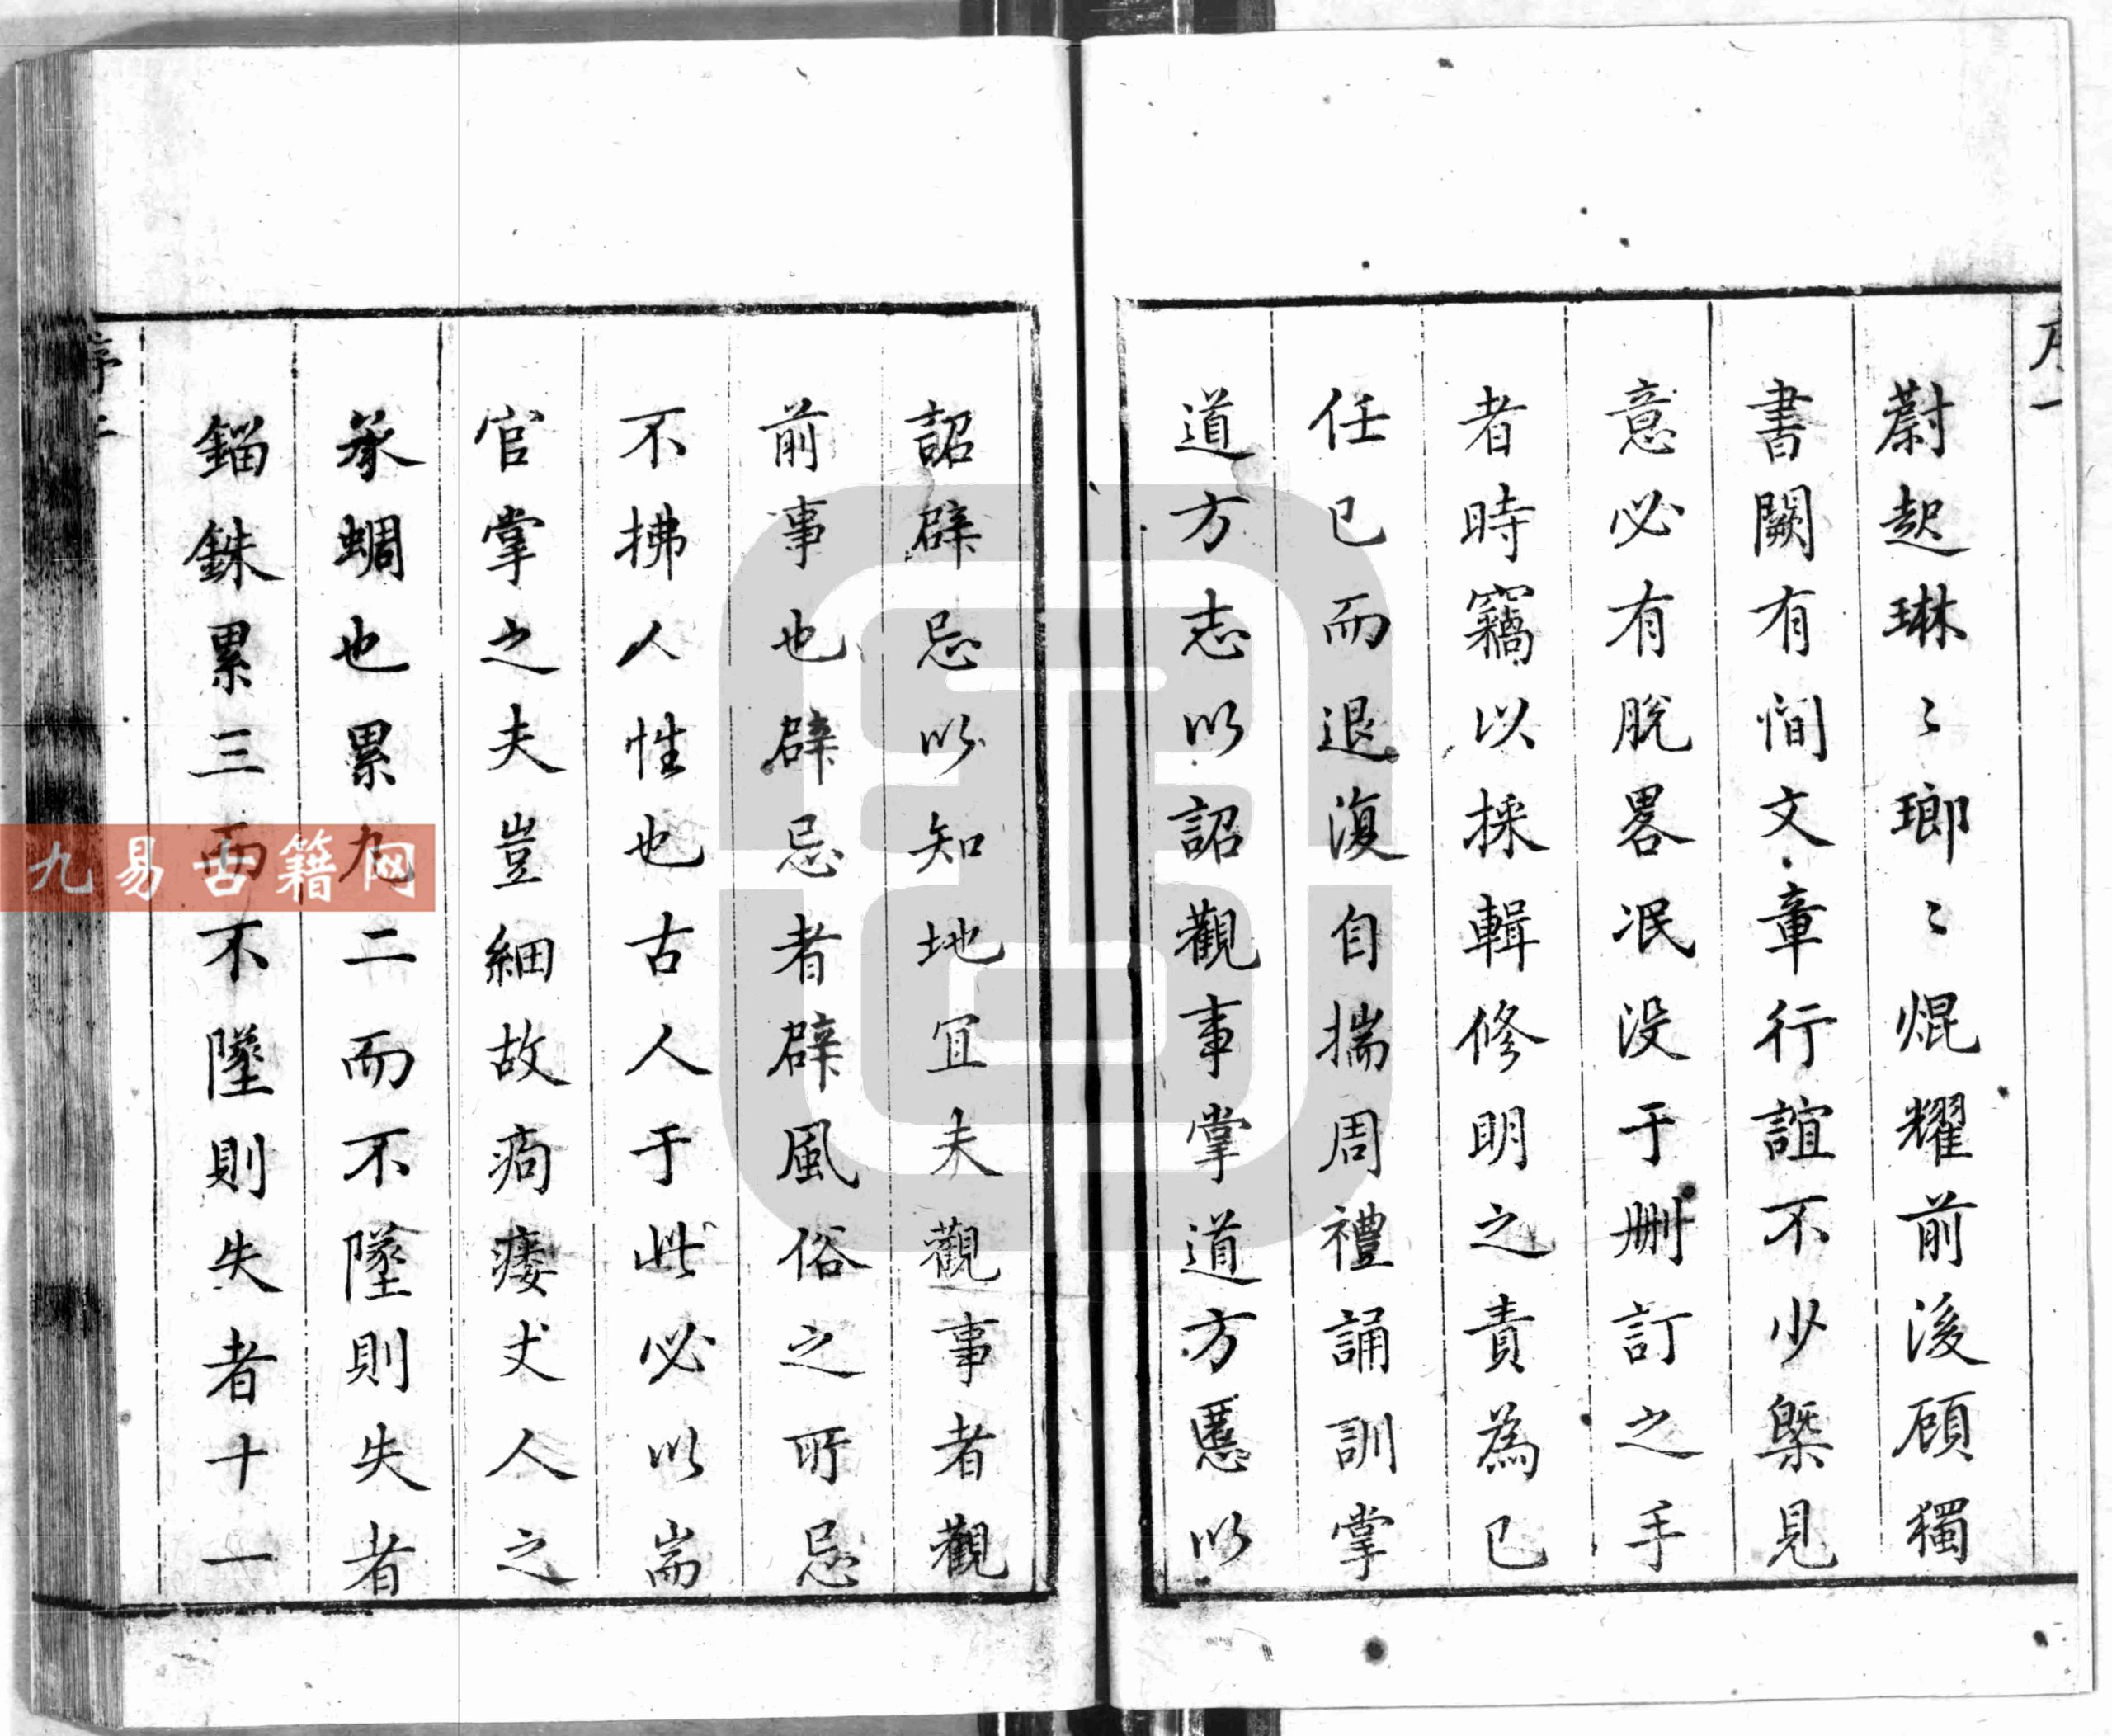 蔚起琳〻瑯〻焜耀前後顧獨
書闕有間文章行誼不少槩見
意必有脫畧泯没于刪訂之手
者時竊以採輯修明之責為已
任已而退復自揣周禮誦訓掌
道方志以詔觀事掌道方慝以
詔辟忌以知地宜夫觀事者觀
前事也辟忌者辟風俗之所忌
不拂人性也古人于此必以耑
官掌之夫豈細故痀瘻丈人之
承蜩也累九二而不墜則失者
錙銖累三而不墜則失者十一
序一
九易古籍网